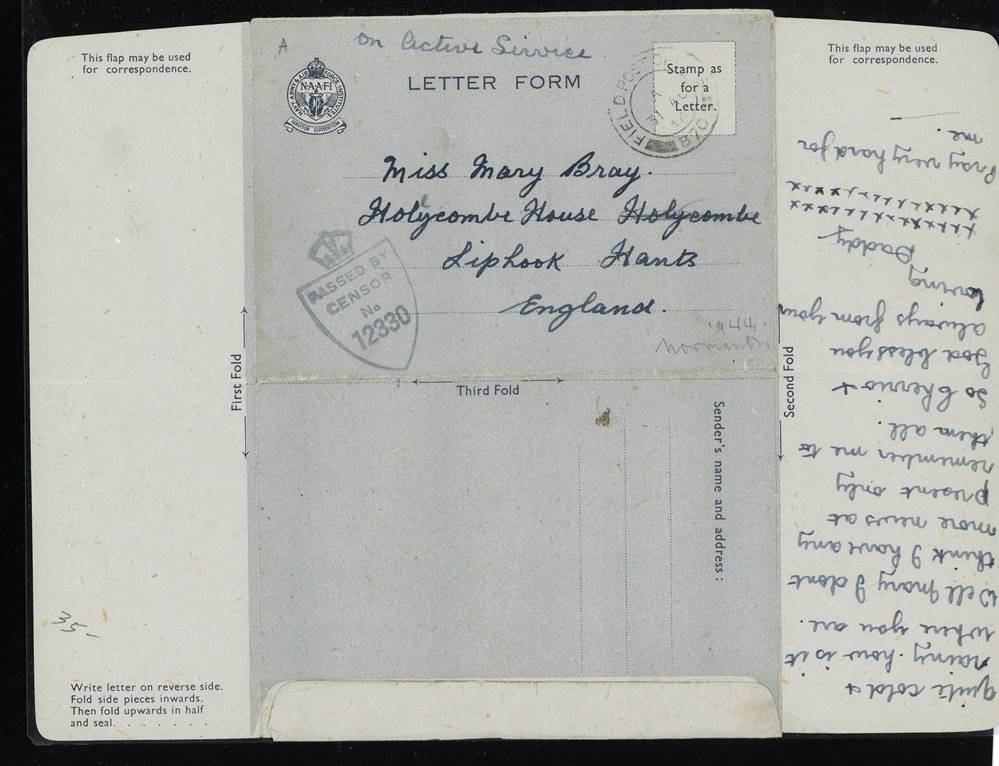 This flap may be used
for correspondence.
35-
First Fold
Write letter on reverse side.
Fold side pieces inwards.
Then fold upwards in half
and seal. . . . . . . .
A
On Active Service
NAVY, ARMY & AIR FORCE INSTITUTES
N·A·A·F·I
SERVITOR SERVIENTIUM
LETTER FORM
FIELD POST OFFICE
31 AU
870
Stamp as
for a
Letter.
Miss Mary Bray.
Hollycombe House Hollycombe
Liphook Hants
England.
PASSED BY
CENSOR
No
12330
1944
Normandy
Third Fold
Sender's name and address:
Second Fold
This flap may be used
for correspondence.
quite cold +
rainy. how is it
where you are.
Well Mary I dont
think I have any
more news at
present only
remember me to
them all.
So Cheerio +
God bless you
always from your
loving
Daddy
xxxxxxxxxxxx
xxxxxxxxxxxx
Pray very hard for
me.